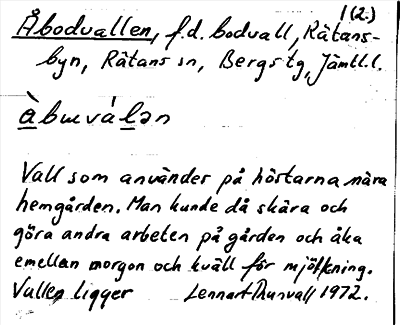 1(2.)
Åbodvallen, f.d. bodvall, Rätans-
byn, Rätans sn, Bergs tg, Jämtl.l.
àbɯvá'lən
Vall som användes på höstarna nära
hemgården. Man kunde då skära och
göra andra arbeten på gården och åka
emellan morgon och kväll för mjölkning.
Vallen ligger Lennart Thunvall 1972.